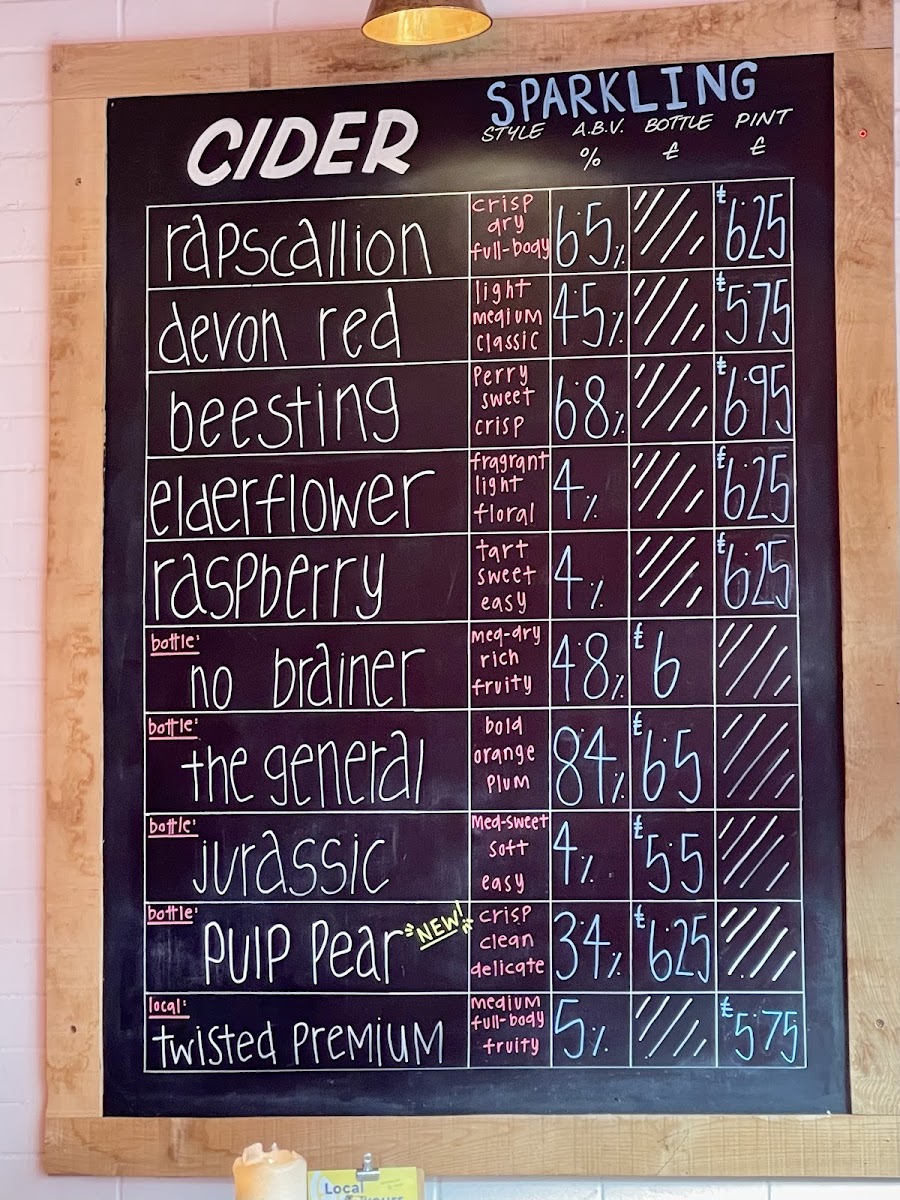 SPARKLING
CIDER
STYLE A.B.V. % BOTTLE £ PINT £
rapscallion crisp dry full-body 6.5% £6.25
devon red light medium classic 4.5% £5.75
beesting Perry sweet crisp 6.8% £6.95
elderflower fragrant light floral 4% £6.25
raspberry tart sweet easy 4% £6.25
bottle:
no brainer med-dry rich fruity 4.8% £6
bottle:
the general bold orange plum 8.4% £6.5
bottle:
jurassic Med-sweet soft easy 4% £5.5
bottle:
PUIP Pear NEW! crisp clean delicate 3.4% £6.25
local:
twisted PREMIUM medium full-body fruity 5% £5.75
Local